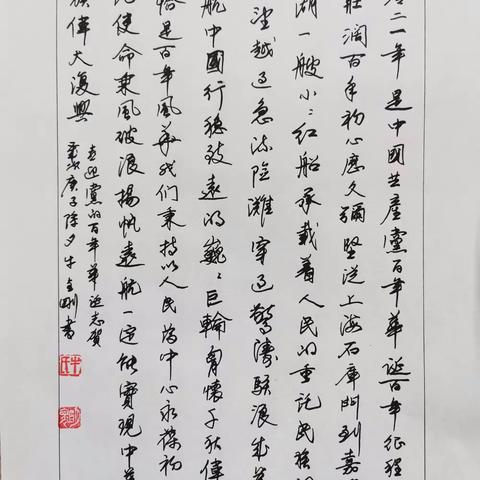 二一年是中國共產黨百年華誕百年征程
壯闊百年初心歷久彌堅從上海石庫門到嘉
湖一艘小々紅船承載着人民的重託民族
望越過急流險灘穿過驚濤駭浪成
航中國行穩致遠的巍々巨輪胸懷千秋偉
恰是百年風華我們秉持以人民為中心永葆初
使命乘風破浪揚帆遠航一定能實現中華
族偉大復興
喜迎黨的百年華誕志賀
庚子除夕牛金剛書